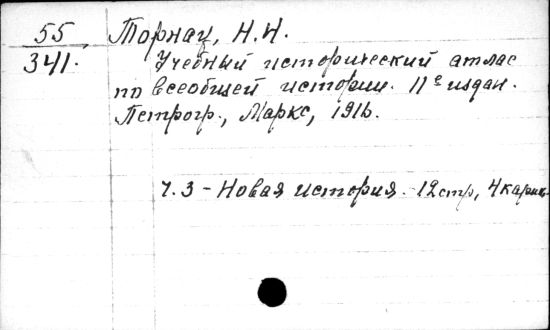 55
341.
Торнау, Н.Н.
Учебный исторический атлас
по всеобщей истории. 11е издан.
Петрогр., Маркс, 1916.
ч. 3 - Новая история. 12 стр, 4 карт.